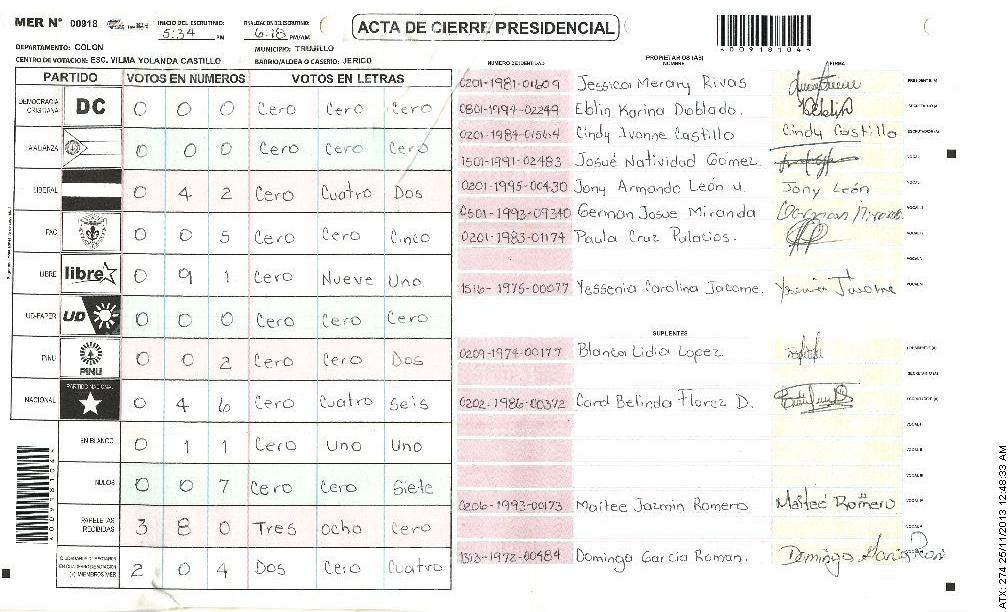 MER N° 00918
INICIO DEL ESCRUTINIO:
5:34 PM
FINALIZACION DEL ESCRUTINIO:
6:18 PM/AM
ACTA DE CIERRE PRESIDENCIAL
4009181044
DEPARTAMENTO: COLON
MUNICIPIO: TRUJILLO
CENTRO DE VOTACION: ESC. VILMA YOLANDA CASTILLO
BARRIO/ALDEA O CASERIO: JERICO
PARTIDO VOTOS EN NUMEROS VOTOS EN LETRAS
DEMOCRACIA CRISTIANA DC 0 0 0 Cero Cero Cero
LA ALIANZA 0 0 0 Cero Cero Cero
LIBERAL 0 4 2 Cero Cuatro Dos
PAC 0 0 5 Cero Cero Cinco
LIBRE libre 0 9 1 Cero Nueve Uno
UD-FAPER UD 0 0 0 Cero Cero Cero
PINU PINU 0 0 2 Cero Cero Dos
NACIONAL PARTIDO NACIONAL 0 4 6 Cero Cuatro Seis
EN BLANCO 0 1 1 Cero Uno Uno
NULOS 0 0 7 Cero Cero Siete
PAPELETAS RECIBIDAS 3 8 0 Tres ocho Cero
(+) MIEMBROS MER 2 0 4 Dos Cero Cuatro
PROPIETARIOS (AS)
NUMERO DE IDENTIDAD NOMBRE FIRMA
0201-1981-01609 Jessica Merary Rivas
0801-1994-02249 Eblin Karina Doblado.
0201-1984-01564 Cindy Ivonne Castillo Cindy Castillo
1501-1991-02483 Josué Natividad Gómez.
0201-1995-00430 Jony Armando León u. Jony León
0501-1993-09340 German Josue Miranda German Miranda
0201-1983-01174 Paula Cruz Palacios.
1516-1975-00077 Yessenia Carolina Jacome.
SUPLENTES
0209-1974-00177 Blanca Lidia Lopez
0202-1986-00372 Carol Belinda Florez D.
0206-1993-00173 Maitee Jazmin Romero Maitee Romero
1313-1972-00484 Domingo Garcia Roman.
4009181044
ATX: 274 25/11/2013 12:48:33 AM